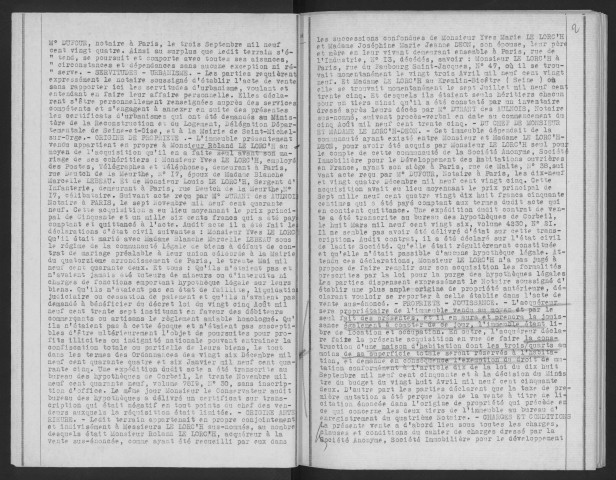 Me DUFOUR, notaire à Paris, le trois Septembre mil neuf
cent vingt quatre. Ainsi au surplus que ledit terrain s'é-
" tend, se poursuit et comporte avec toutes ses aisances,
" circonstances et dépendances sans aucune exception ni ré-
" serve. - SERVITUDES - URBANISME. - Les parties requièrent
expressément le notaire soussigné d'établir l'acte de vente
sans rapporter ici les servitudes d'urbanisme, voulant et
entendant en faire leur affaire personnelle. Elles décla-
rent s'être personnellement renseignées auprès des services
compétents et s'engagent à annexer en suite des présentes
les certificats d'urbanisme qui ont été demandés au Minis-
tère de la Reconstruction et du Logement, Délégation Dépar-
tementale de Seine-et-Oise, et à la Mairie de Saint-Michel-
sur-Orge. - ORIGINE DE PROPRIETE - L'immeuble présentement
vendu appartient en propre à Monsieur Roland LE LORC'H au
moyen de l'acquisition qu'il en a faite seul avant son ma-
riage de ses coindivitaires : Monsieur Yves LE LORC'H, employé
des Postes, Télégraphes et Téléphones, demeurant à Paris,
rue Deutch de la Meurthe, N° 17, époux de Madame Blanche
Mercelle LEREUX. Et de Monsieur Louis LE LORC'H, Sergent d'
Infanterie, demeurant à Paris, rue Deutch de la Meurthe,N°
17, célibataire. Suivant acte reçu par Me DURANT DES AULNOIS
Notaire à PARIS, le sept novembre mil neuf cent quarante
neuf. Cette acquisition a eu lieu moyennant le prix princi-
pal de Cinquante et un mille six cents francs qui a été payé
comptant et quittancé à l'acte. Audit acte il a été fait les
déclarations d'état civil suivantes : Monsieur Yves LE LORC'H
Qu'il était marié avec Madame Blanche Mercelle LEREUX sous
le régime de la communauté légale de biens à défaut de con-
trat de mariage préalable à leur union célébrée à la Mairie
du quatorzième arrondissement de Paris, le trente Mai mil
neuf cent quarante deux. Et tous : Qu'ils n'étaient pas et
n'avaient jamais été tuteurs de mineurs ou d'interdits ni
chargés de fonctions emportant hypothèque légale sur leurs
biens. Qu'ils n'étaient pas en état de faillite, liquidation
judiciaire ou cessation de paiement et qu'ils n'avaient pas
demandé à bénéficier du décret loi du vingt cinq Août mil
neuf cent trente sept instituant en faveur des débiteurs
commerçants ou artisans le règlement amiable homologué. Qu'
ils n'étaient pas à cette époque et n'étaient pas suscepti-
bles d'être ultérieurement l'objet de poursuites pour pro-
fits illicites ou indignité nationale pouvant entraîner la
confiscation totale ou partielle de leurs biens, le tout
dans les termes des Ordonnances des Vingt six Décembre mil
neuf cent quarante quatre et six Janvier mil neuf cent qua-
rante cinq. Une expédition dudit acte a été transcrite au
bureau des hypothèques de Corbeil, le trente Novembre mil
neuf cent quarante neuf, volume N° 50, sans inscrip-
tion d'office. Le même jour Monsieur le Conservateur audit
bureau des hypothèques a délivré un certificat sur trans-
cription qui était négatif en tout points du chef des ven-
deurs auxquels la réquisition était limitée. - ORIGINE ANTE
RIEURE. - Ledit terrain appartenait en propre conjointement
et indivisément à Messieurs LE LORC'H sus-nommés, au nombre
desquels était Monsieur Roland LE LORC'H, acquéreur à la
vente sus-énoncée, comme ayant été recueilli par eux dans
2
les successions confondues de Monsieur Yves Marie LE LORC'H
et Madame Joséphine Marie Jeanne DEON, son épouse, leur père
et mère en leur vivant demeurant ensemble à Paris, rue de
l'Industrie, N° 13, décédés, savoir : Monsieur LE LORC'H à
Paris, rue du Faubourg Saint-Jacques, N° 47, où il se trou-
vait momentanément le vingt trois Avril mil neuf cent vingt
neuf. Et Madame LE LORC'H au Kremlin-Bicêtre ( Seine ) où
elle se trouvait momentanément le sept Juillet mil neuf cent
trente cinq. Et desquels ils étaient seuls héritiers chacun
pour un tiers ainsi qu'il a été constaté par un inventaire
dressé après leurs décès par Me DURANT DES AULNOIS, Notaire
sus-nommé, suivant procès-verbal en date au commencement du
cinq Août mil neuf cent trente cinq. - DU CHEF DE MONSIEUR
ET MADAME LE LORC'H-DEON. - Ledit immeuble dépendait de la
communauté ayant existé entre Monsieur et Madame LE LORC'H-
DEON, pour avoir été acquis par Monsieur LE LORC'H seul pour
le compte de cette communauté de la Société Anonyme, Société
Immobilière pour le développement des Habitations ouvrières
en France, ayant son siège à Paris, rue de Malte, N° 38, sui
vant acte reçu par Me DUFOUR, Notaire à Paris, les dix-neuf
et vingt quatre Décembre mil neuf cent vingt cinq. Cette
acquisition avait eu lieu moyennant le prix principal de
Sept mille neuf cent quatre vingt dix huit francs cinquante
centimes qui a été payé comptant aux termes dudit acte qui
en contient quittance. Une expédition dudit contrat de ven-
te a été transcrite au bureau des hypothèques de Corbeil,
le huit Mars mil neuf cent vingt six, volume 4230, N° 21.
Il ne semble pas avoir été délivré d'état sur cette trans-
cription. Audit contrat, il a été déclaré sur l'état civil
de ladite Société. Qu'elle était régulièrement constituée
et qu'elle n'était passible d'aucune hypothèque légale. At-
tendu ces déclarations, Monsieur LE LORC'H n'a pas jugé à
propos de faire remplir sur son acquisition les formalités
prescrites par la loi pour la purge des hypothèques légales
Les parties dispensent expressément le Notaire soussigné d'
établir une plus ample origine de propriété antérieure, dé-
clarant vouloir se reporter à celle établie dans l'acte de
vente sus-énoncé. - PROPRIETE - JOUISSANCE. - L'acquéreur
sera propriétaire de l'immeuble vendu au moyen et par le
seul fait des présentes, et il en aura et prendra la jouis-
sance également à compter de ce jour, l'immeuble étant li-
bre de location et occupation. En outre, l'acquéreur décla-
re faire la présente acquisition en vue de faire la cons-
truction d'une maison d'habitation dont les trois quarts au
moins de sa superficie totale seront réservés à l'habita-
tion, et demande en conséquence l'exemption du droit de mu-
tation conformément à l'article dix de la loi du dix huit
Septembre mil neuf cent cinquante et à la décision du Minis-
tre du Budget du vingt huit Avril mil neuf cent cinquante
deux. D'autre part les parties déclarent que la taxe de pre-
mière mutation a été perçue lors de la vente à titre de li-
citation énoncée dans l'origine de propriété qui précède en
ce qui concerne les deux tiers de l'immeuble au bureau d'
enregistrement du quatrième Notaire. - CHARGES ET CONDITIONS
La présente vente a d'abord lieu sous toutes les charges,
clauses et conditions du cahier de charges dressé par la
Société Anonyme, Société Immobilière pour le développement